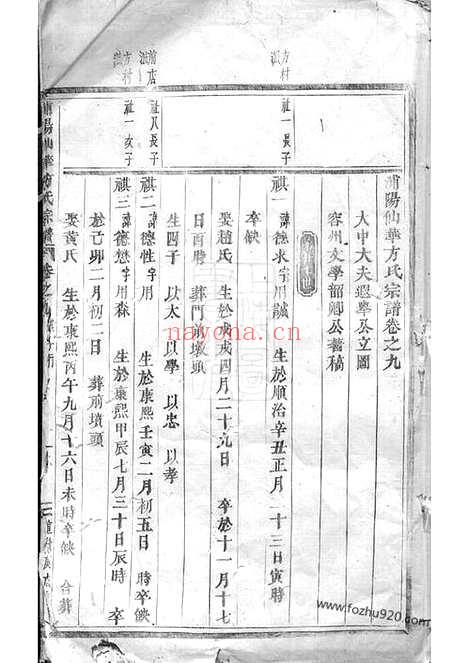 浦陽仙華方氏宗譜卷之九
大中大夫遐舉公立圖
容州文學韶卿公舊稿
方村派
祉一長子
祺一 諱德求字用誠 生於順治辛丑正月二十三日寅時
卒缺
娶趙氏 生於戊戌四月二十九日 卒於十一月十七
日酉時 葬門前墳頭
生四子 以太 以學 以忠 以孝
前店派
祉八長子
祺二 諱德性字用 生於康熙壬寅二月初五日 時卒缺
方村派
祉一次子
祺三 諱德懋字用森 生於康熙甲辰七月三十日辰時 卒
於己卯二月初二日 葬前墳頭
娶黃氏 生於康熙丙午九月十六日未時卒缺 合葬
浦陽仙華方氏宗譜 卷之
nayona.cn
www.fozhu920.com